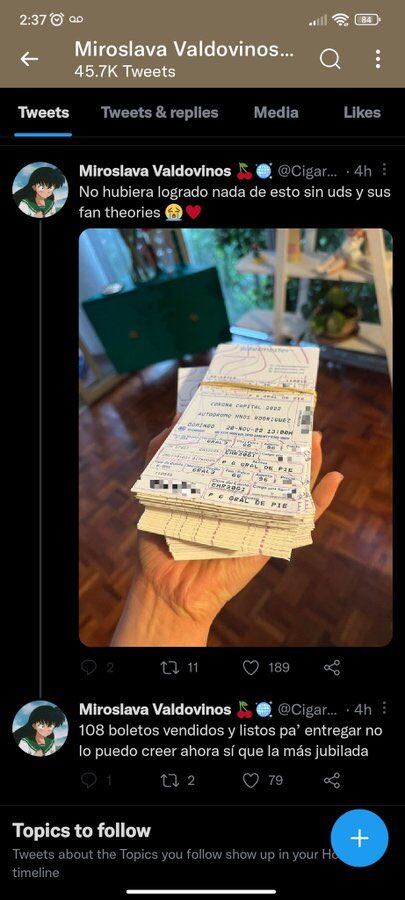 2:37
84
Miroslava Valdovinos...
45.7K Tweets
Tweets
Tweets & replies
Media
Likes
Miroslava Valdovinos 🍒🪩 @Cigar... · 4h
No hubiera logrado nada de esto sin uds y sus
fan theories 😭♥️
CORONA CAPITAL 2022
AUTODROMO HNOS RODRIGUEZ
DOMINGO 20-NOV-22 13:00H
P G GRAL DE PIE
GRAL3 66 96
CHR2061
P G GRAL DE PIE
2
11
189
Miroslava Valdovinos 🍒🪩 @Cigar... · 4h
108 boletos vendidos y listos pa' entregar no
lo puedo creer ahora sí que la más jubilada
1
2
79
Topics to follow
Tweets about the Topics you follow show up in your Ho
timeline